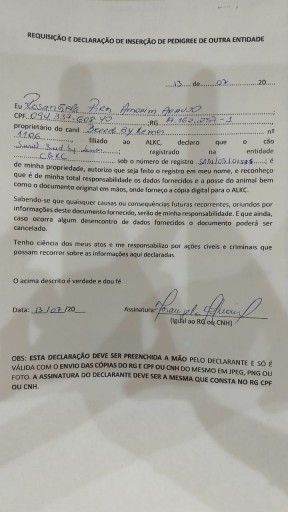 REQUISIÇÃO E DECLARAÇÃO DE INSERÇÃO DE PEDIGREE DE OUTRA ENTIDADE
13 de 07 20
Eu Rosangela Amorim
CPF. RG
proprietário do canil nº
filiado ao ALKC, declaro que o cão
registrado na entidade
CBKC sob o número de registro é
de minha propriedade, autorizo que seja feito o registro em meu nome, e reconheço
que é de minha total responsabilidade os dados fornecidos e a posse do animal bem
como o documento original em mãos, onde forneço a cópia digital para o ALKC.
Sabendo-se que quaisquer causas ou consequências futuras recorrentes, oriundos por
informações deste documento fornecido, serão de minha responsabilidade. E que ainda,
caso ocorra algum desencontro de dados fornecidos o documento poderá ser
cancelado.
Tenho ciência dos meus atos e me responsabilizo por ações cíveis e criminais que
possam recorrer sobre as informações aqui declaradas.
O acima descrito é verdade e dou fé
Data: 13/07/20 Assinatura:
(Igual ao RG ou CNH)
OBS: ESTA DECLARAÇÃO DEVE SER PREENCHIDA A MÃO PELO DECLARANTE E SÓ É
VÁLIDA COM O ENVIO DAS CÓPIAS DO RG E CPF OU CNH DO MESMO EM JPEG, PNG OU
FOTO. A ASSINATURA DO DECLARANTE DEVE SER A MESMA QUE CONSTA NO RG CPF
OU CNH.